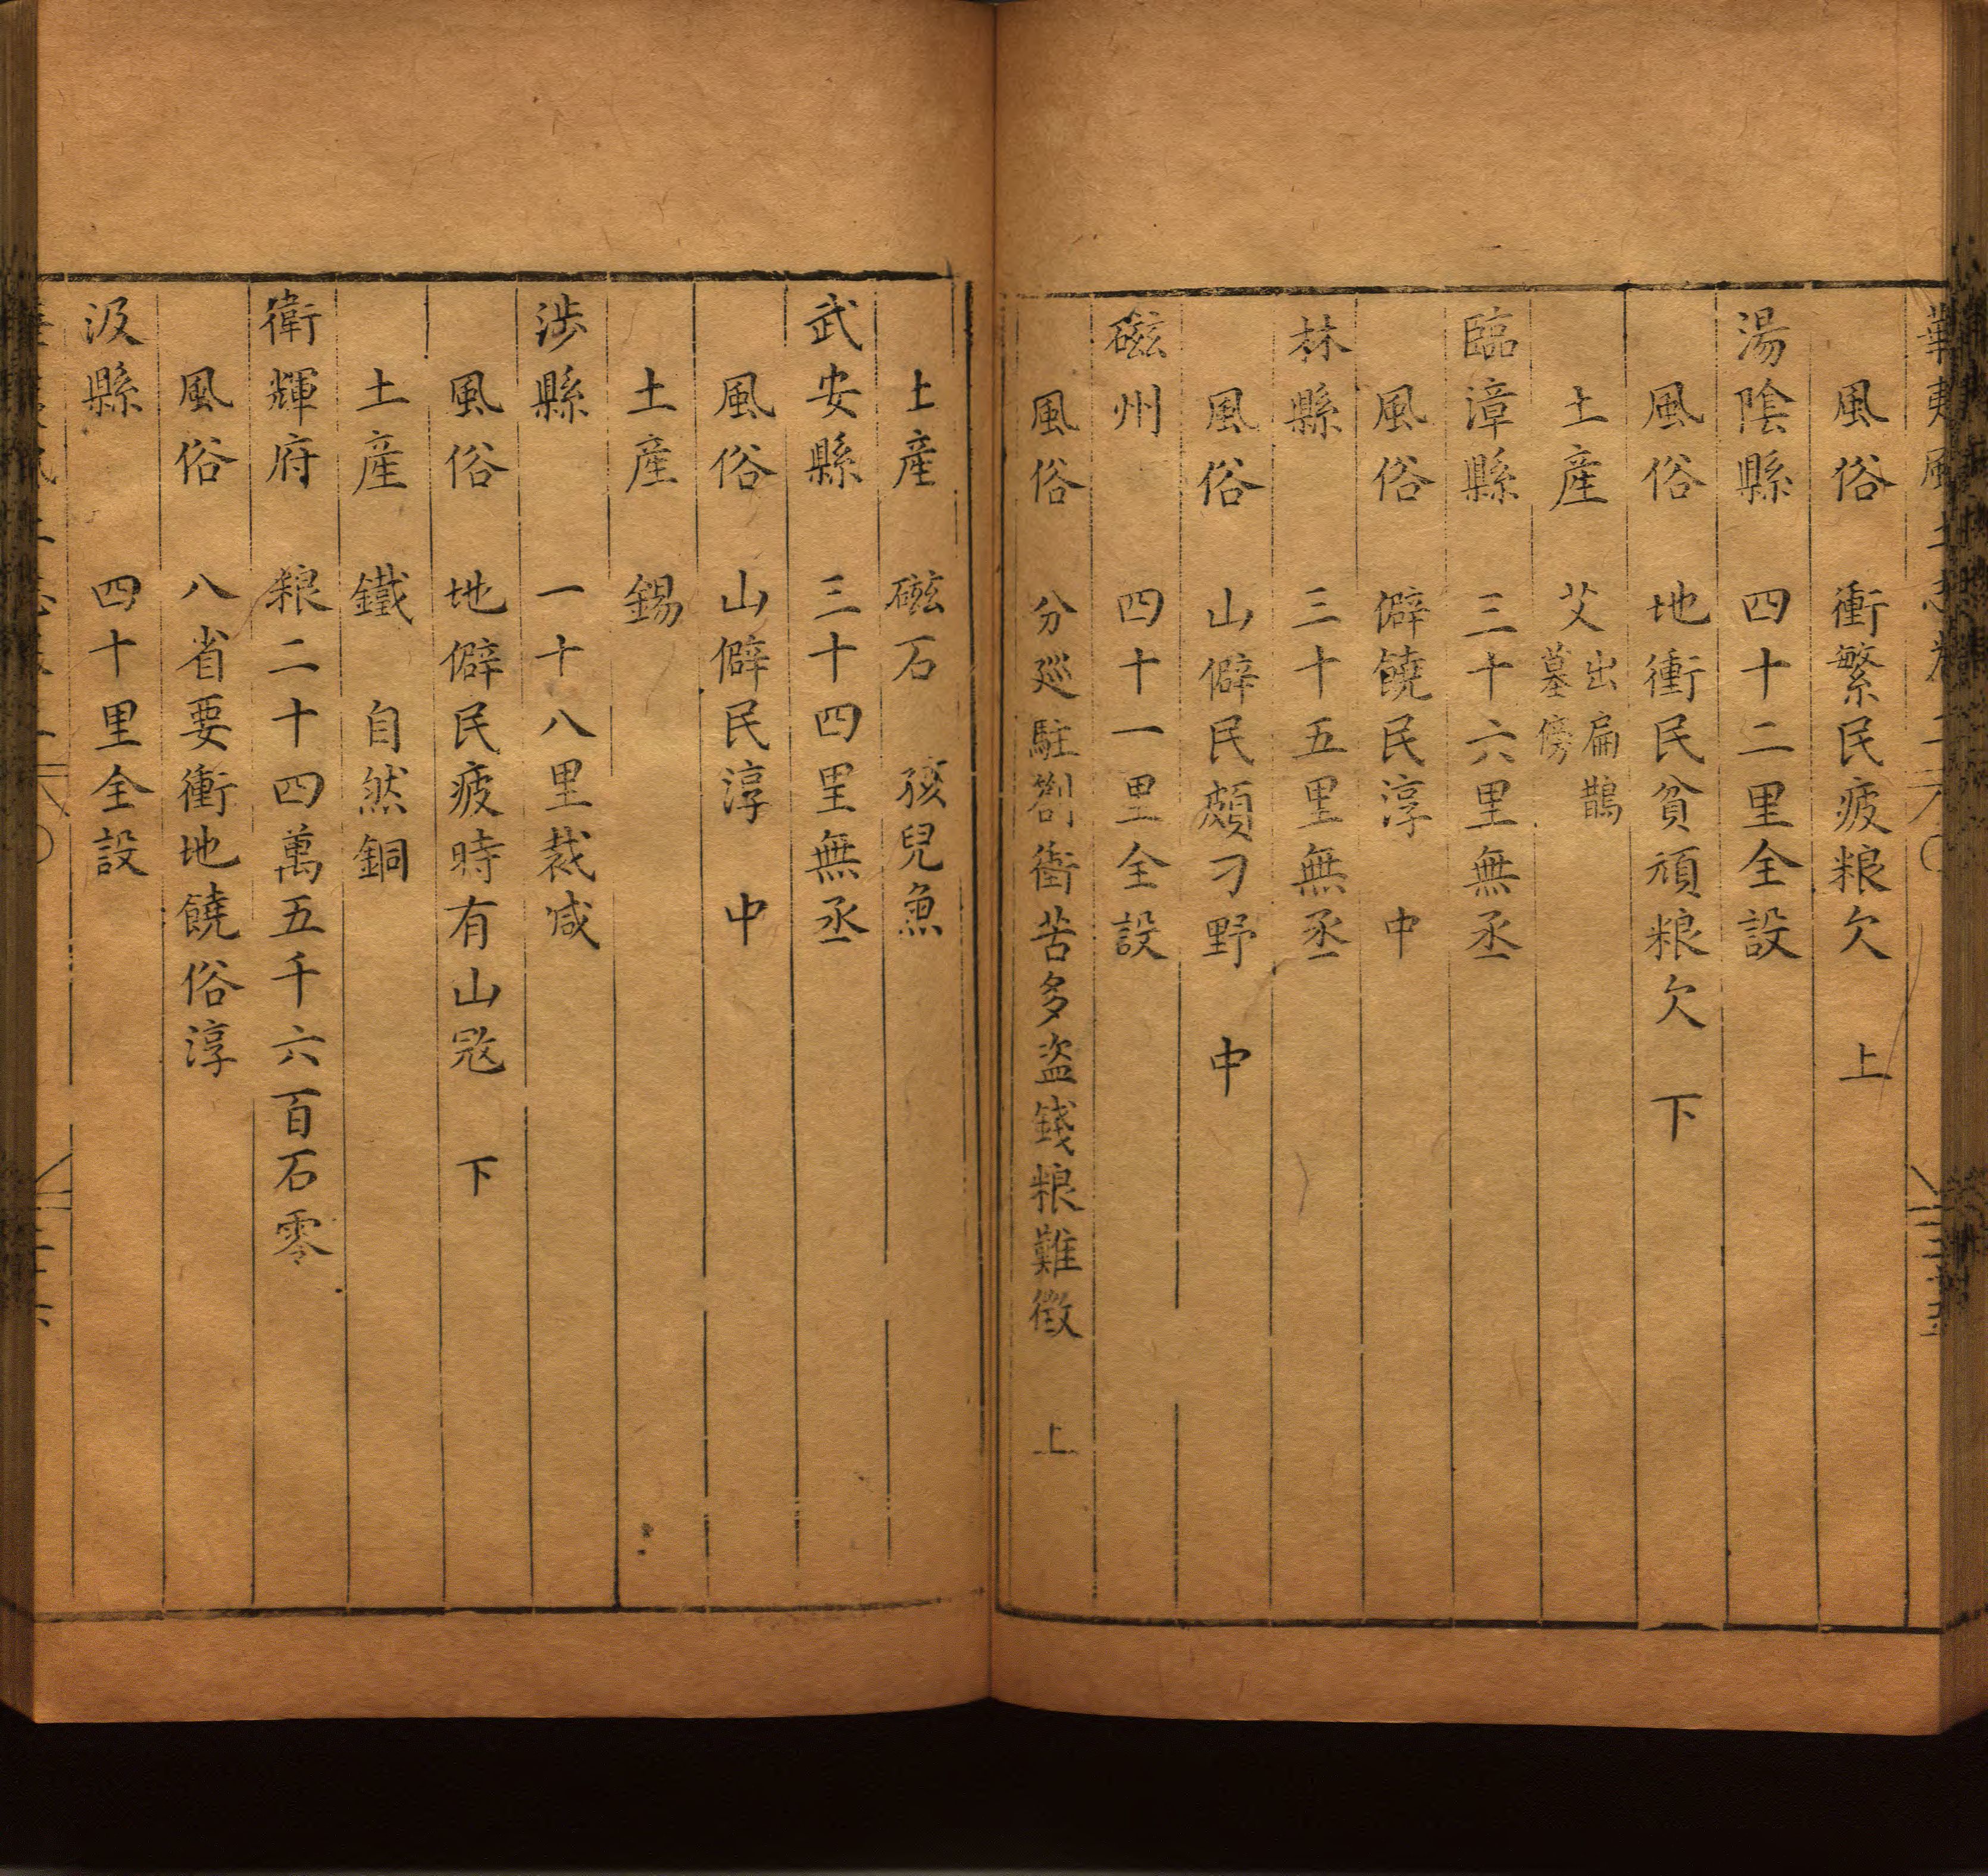 風俗 衝繁民疲粮欠 上
湯陰縣 四十二里全設
風俗 地衝民貧頑粮欠 下
土產 艾 出扁鵲墓傍
臨漳縣 三十六里無丞
風俗 僻饒民淳 中
林縣 三十五里無丞
風俗 山僻民頗刁野 中
磁州 四十一里全設
風俗 分廵駐劄衝苦多盗錢粮難徵 上
土產 磁石 孩兒魚
武安縣 三十四里無丞
風俗 山僻民淳 中
土產 錫
涉縣 一十八里裁减
風俗 地僻民疲時有山寇 下
土產 鐵 自然銅
衛輝府 粮二十四萬五千六百石零
風俗 八省要衝地饒俗淳
汲縣 四十里全設